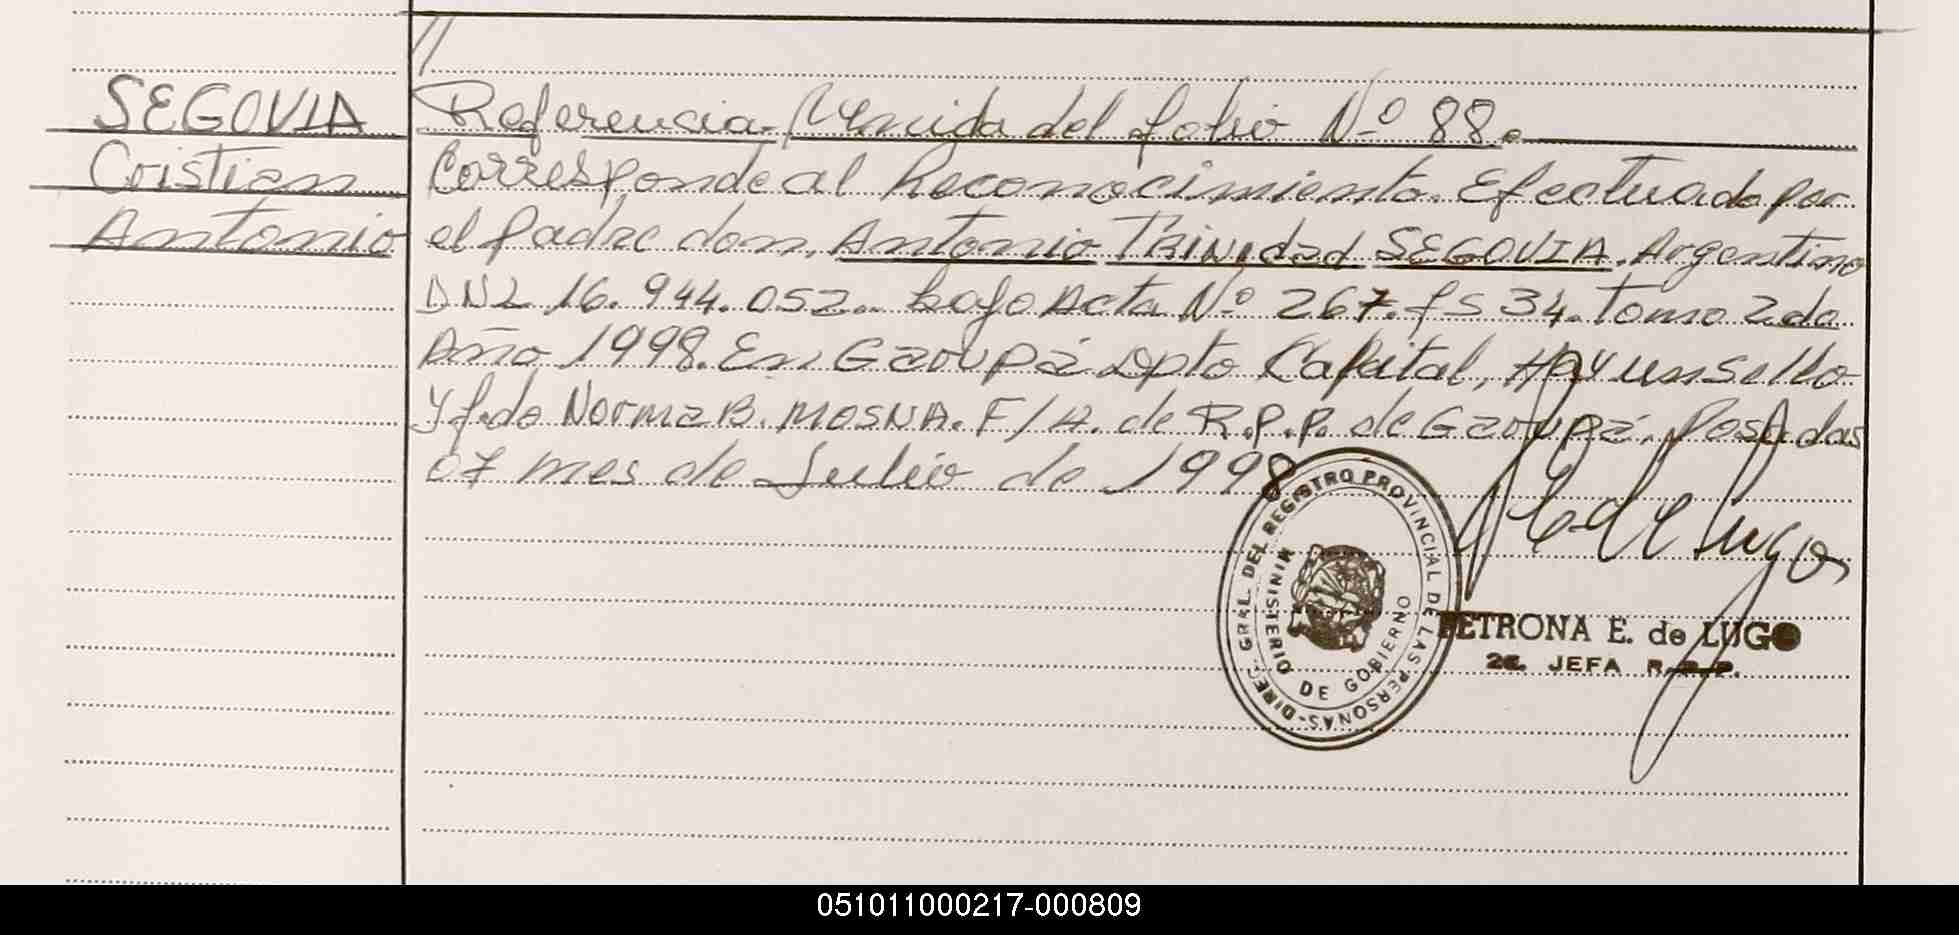 //
SEGOVIA
Cristian
Antonio
Referencia Venida del folio Nº 88.
Corresponde al Reconocimiento. Efectuado por
el padre don, Antonio TRINidad SEGOVIA. Argentino
DNI 16.944.052.. bajo Acta Nº 267. fs 34. Tomo 2do
Año 1998. En Garupá Dpto Capital, Hay un Sello
y fdo Norma B. MOSNA. F/A. de R.P.P. de Garupá. Posadas
07 mes de Julio de 1998
DIREC. GRAL. DEL REGISTRO PROVINCIAL DE LAS PERSONAS-
MINISTERIO DE GOBIERNO
PETRONA E. de LUGO
2E. JEFA R.P.P.
051011000217-000809